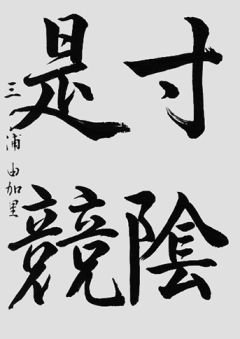 寸陰
是競
三浦由加里